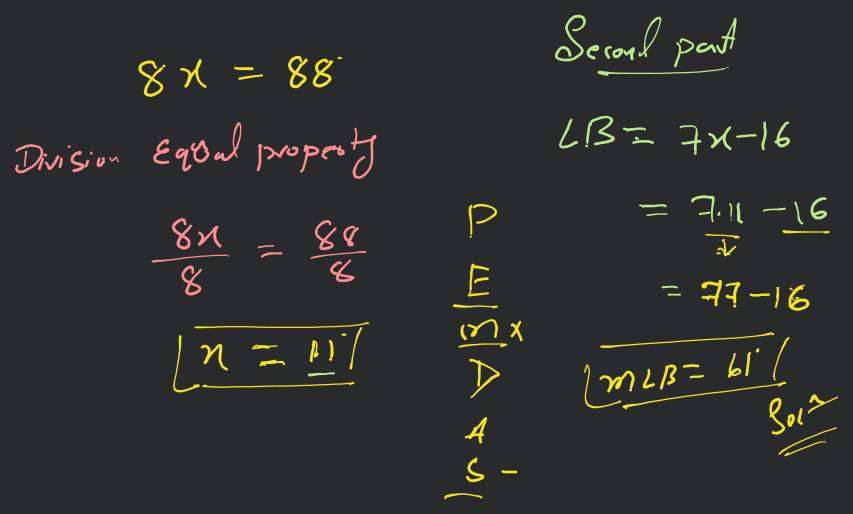 8x = 88°
Division Equal property
8x/8 = 88/8
x = 11°
P
E
m x
D
A
S -
Second part
∠B = 7x-16
= 7.11 - 16
= 77-16
m∠B = 61°
Solⁿ